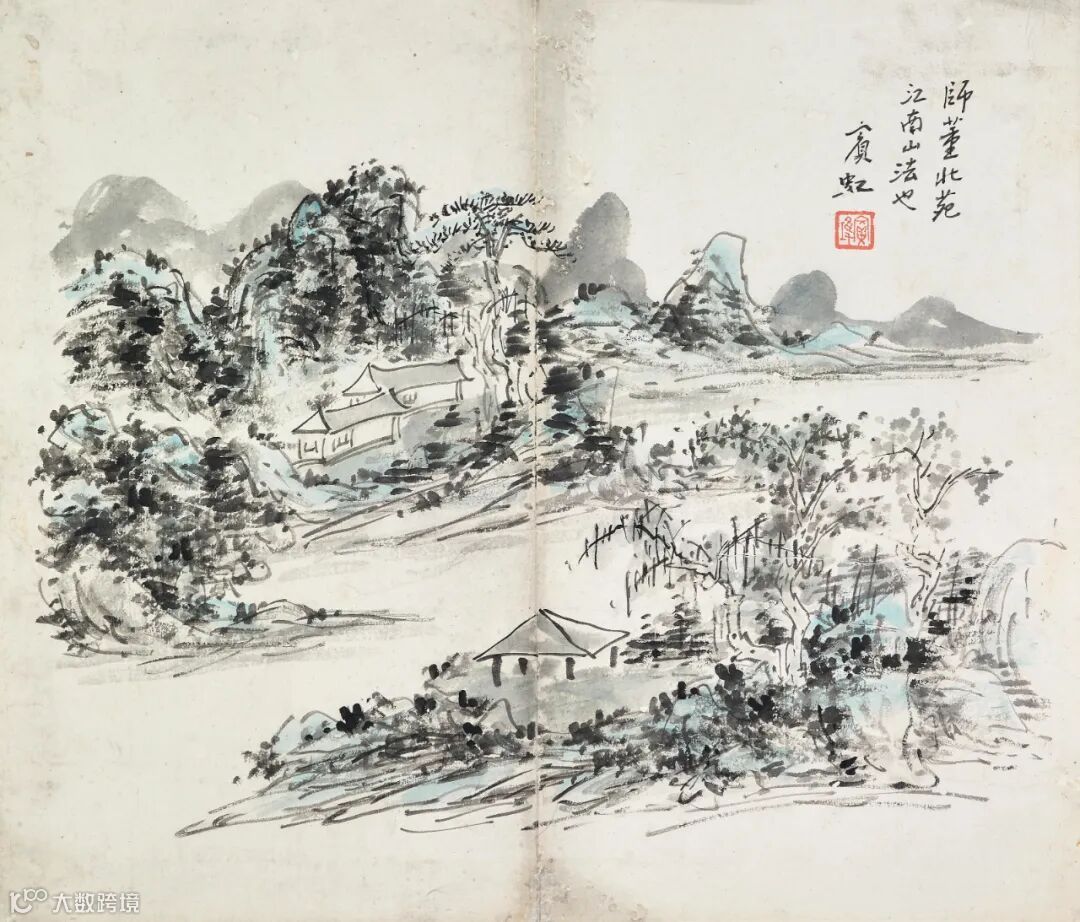 師董北苑
江南山法也
賓虹
大数跨境